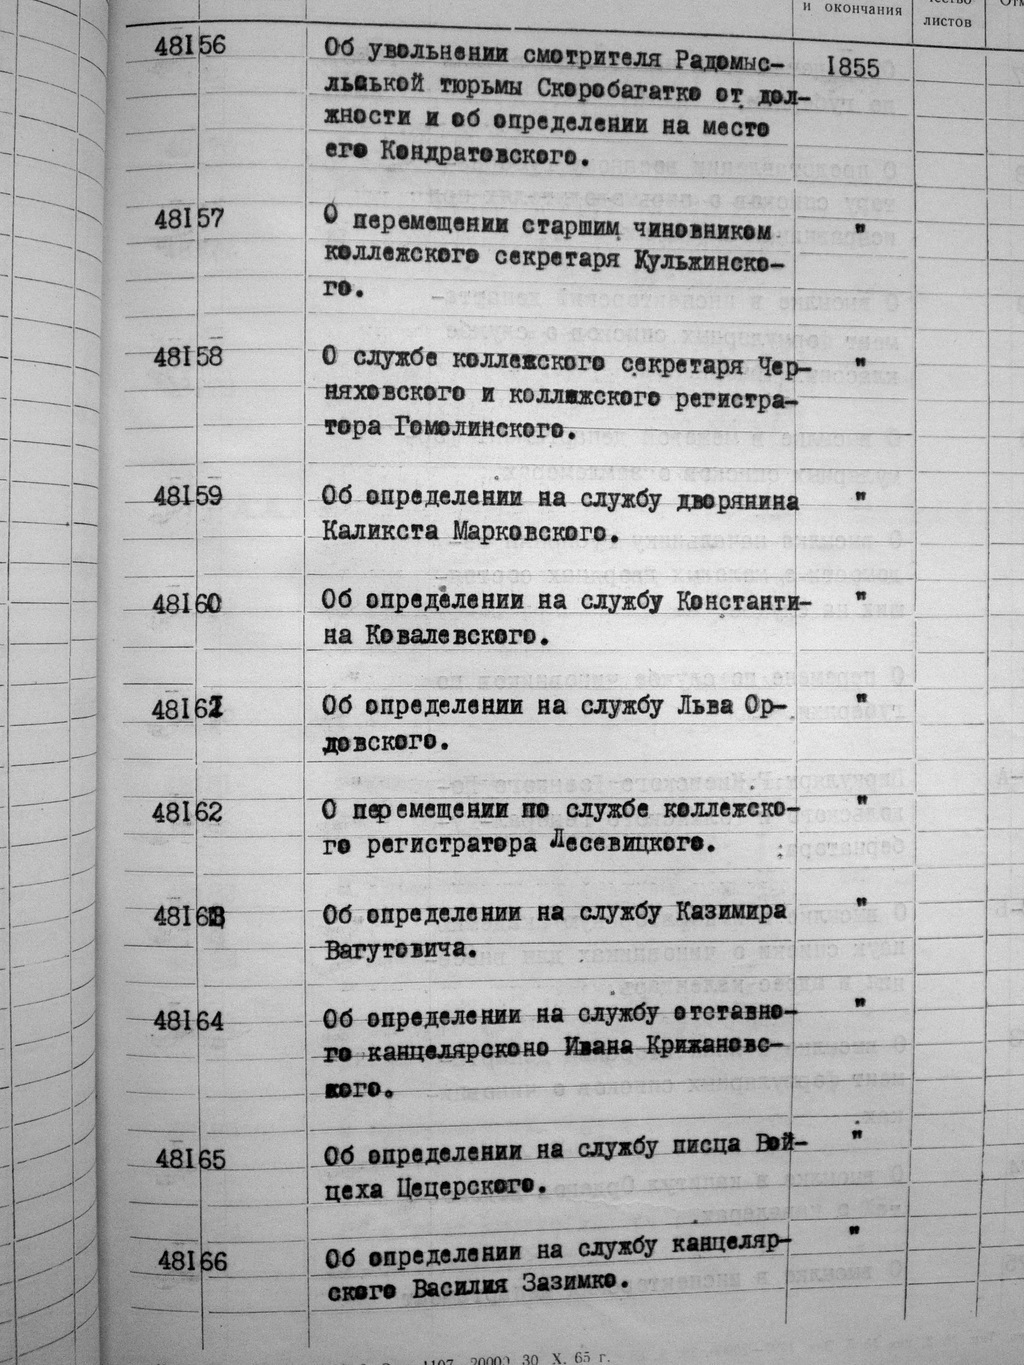 и окончания
листов
48156
Об увольнении смотрителя Радомыс-
льськой тюрьмы Скоробагатко от дол-
жности и об определении на место
его Кондратовского.
1855
48157
О перемещении старшим чиновником
коллежского секретаря Кульжинско-
го.
"
48158
О службе коллежского секретаря Чер-
няховского и коллежского регистра-
тора Гомолинского.
"
48159
Об определении на службу дворянина
Каликста Марковского.
"
48160
Об определении на службу Константи-
на Ковалевского.
"
48161
Об определении на службу Льва Ор-
довского.
"
48162
О перемещении по службе коллежско-
го регистратора Лесевицкого.
"
48163
Об определении на службу Казимира
Вагутовича.
"
48164
Об определении на службу отставно-
го канцелярсконо Ивана Крижановс-
кого.
"
48165
Об определении на службу писца Вой-
цеха Цецерского.
"
48166
Об определении на службу канцеляр-
ского Василия Зазимко.
"
1107 20000 30 X. 65 г.